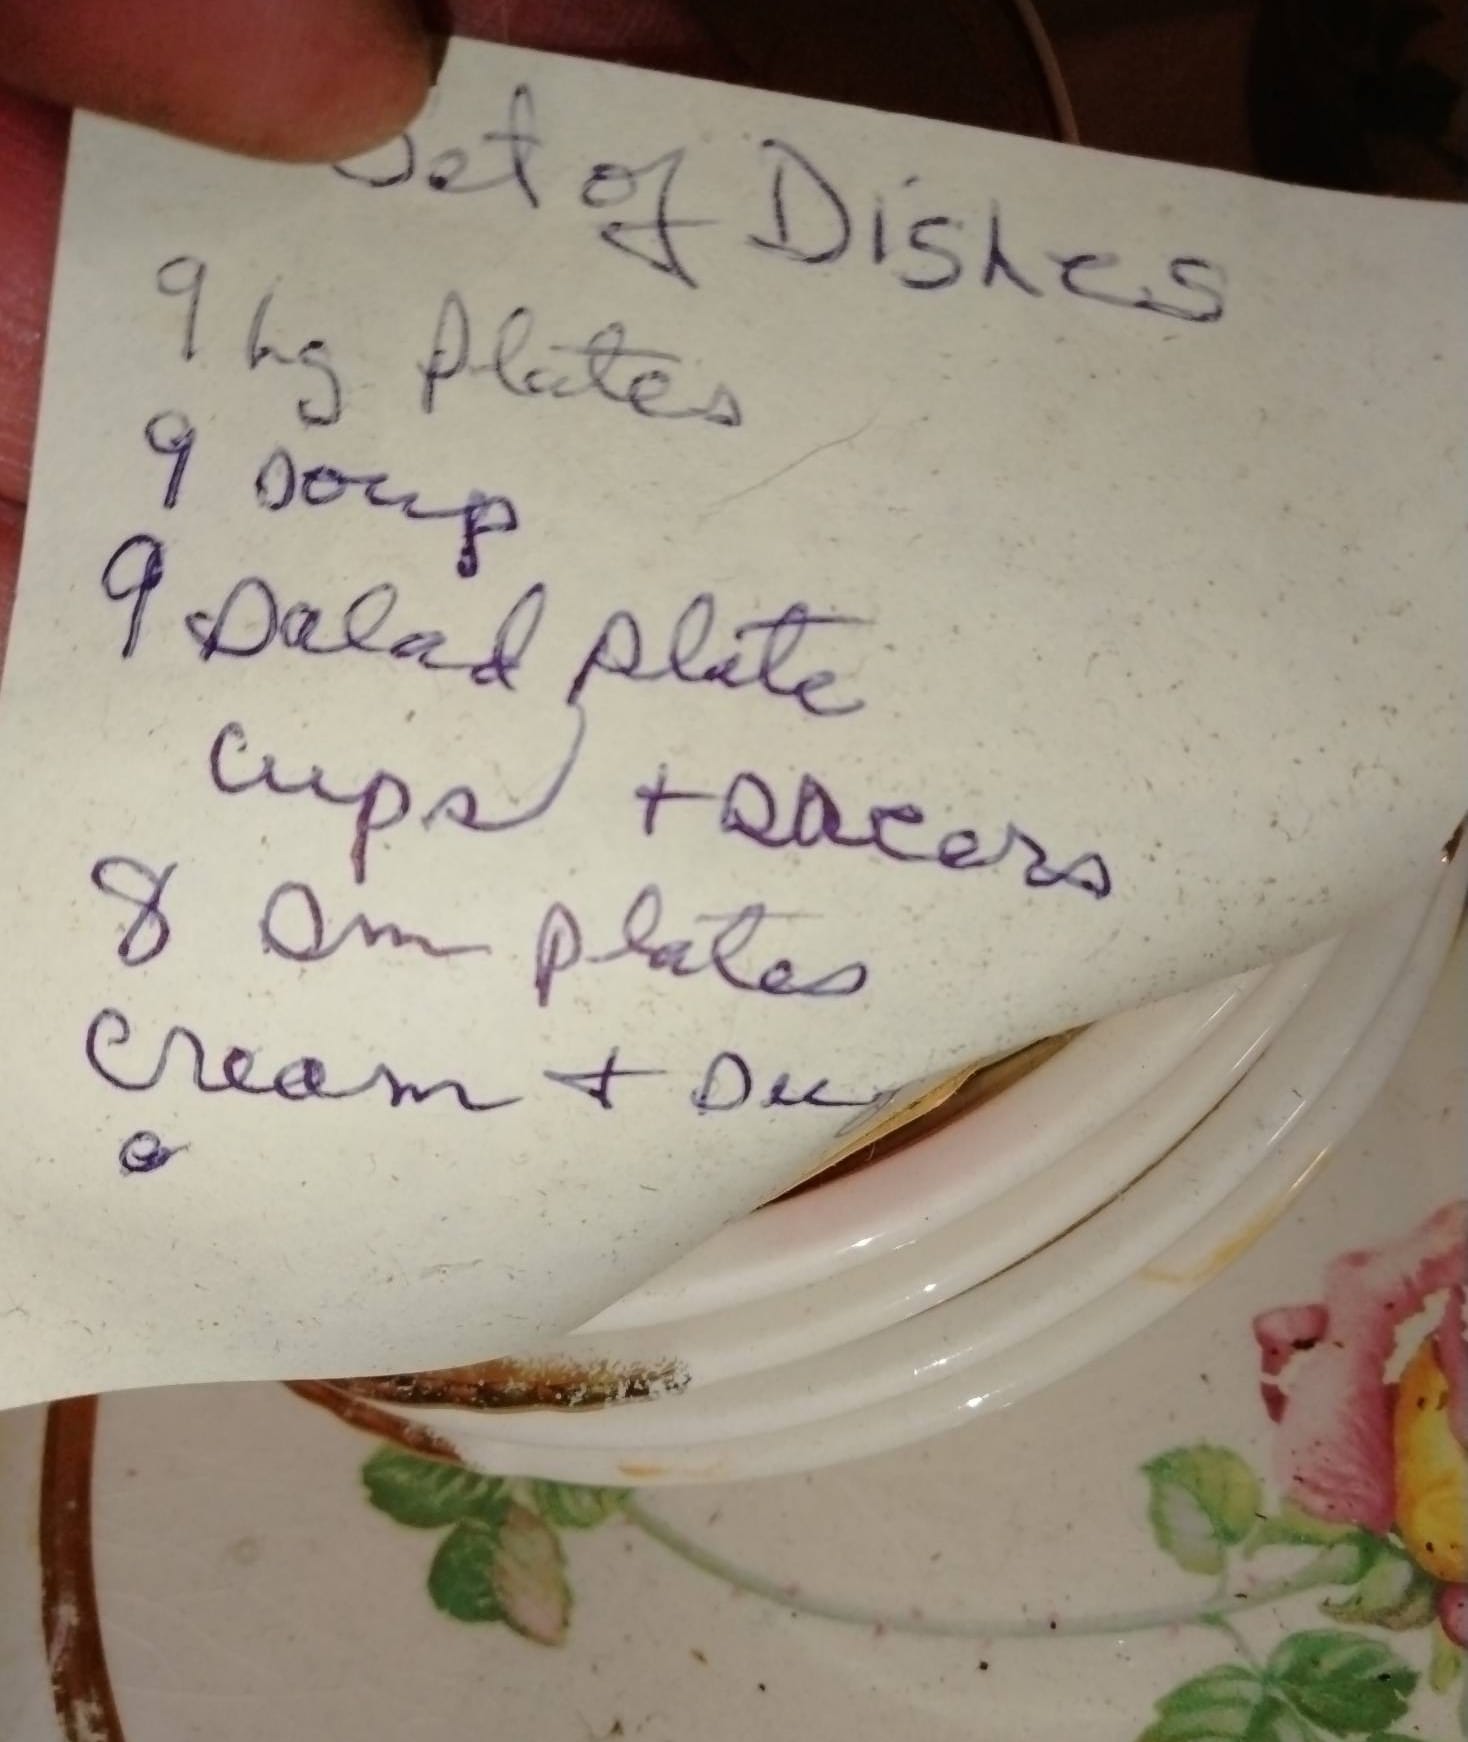 Set of Dishes
9 hg plates
9 soup
9 Salad plate
cups + sacers
8 sm plates
cream + Sug